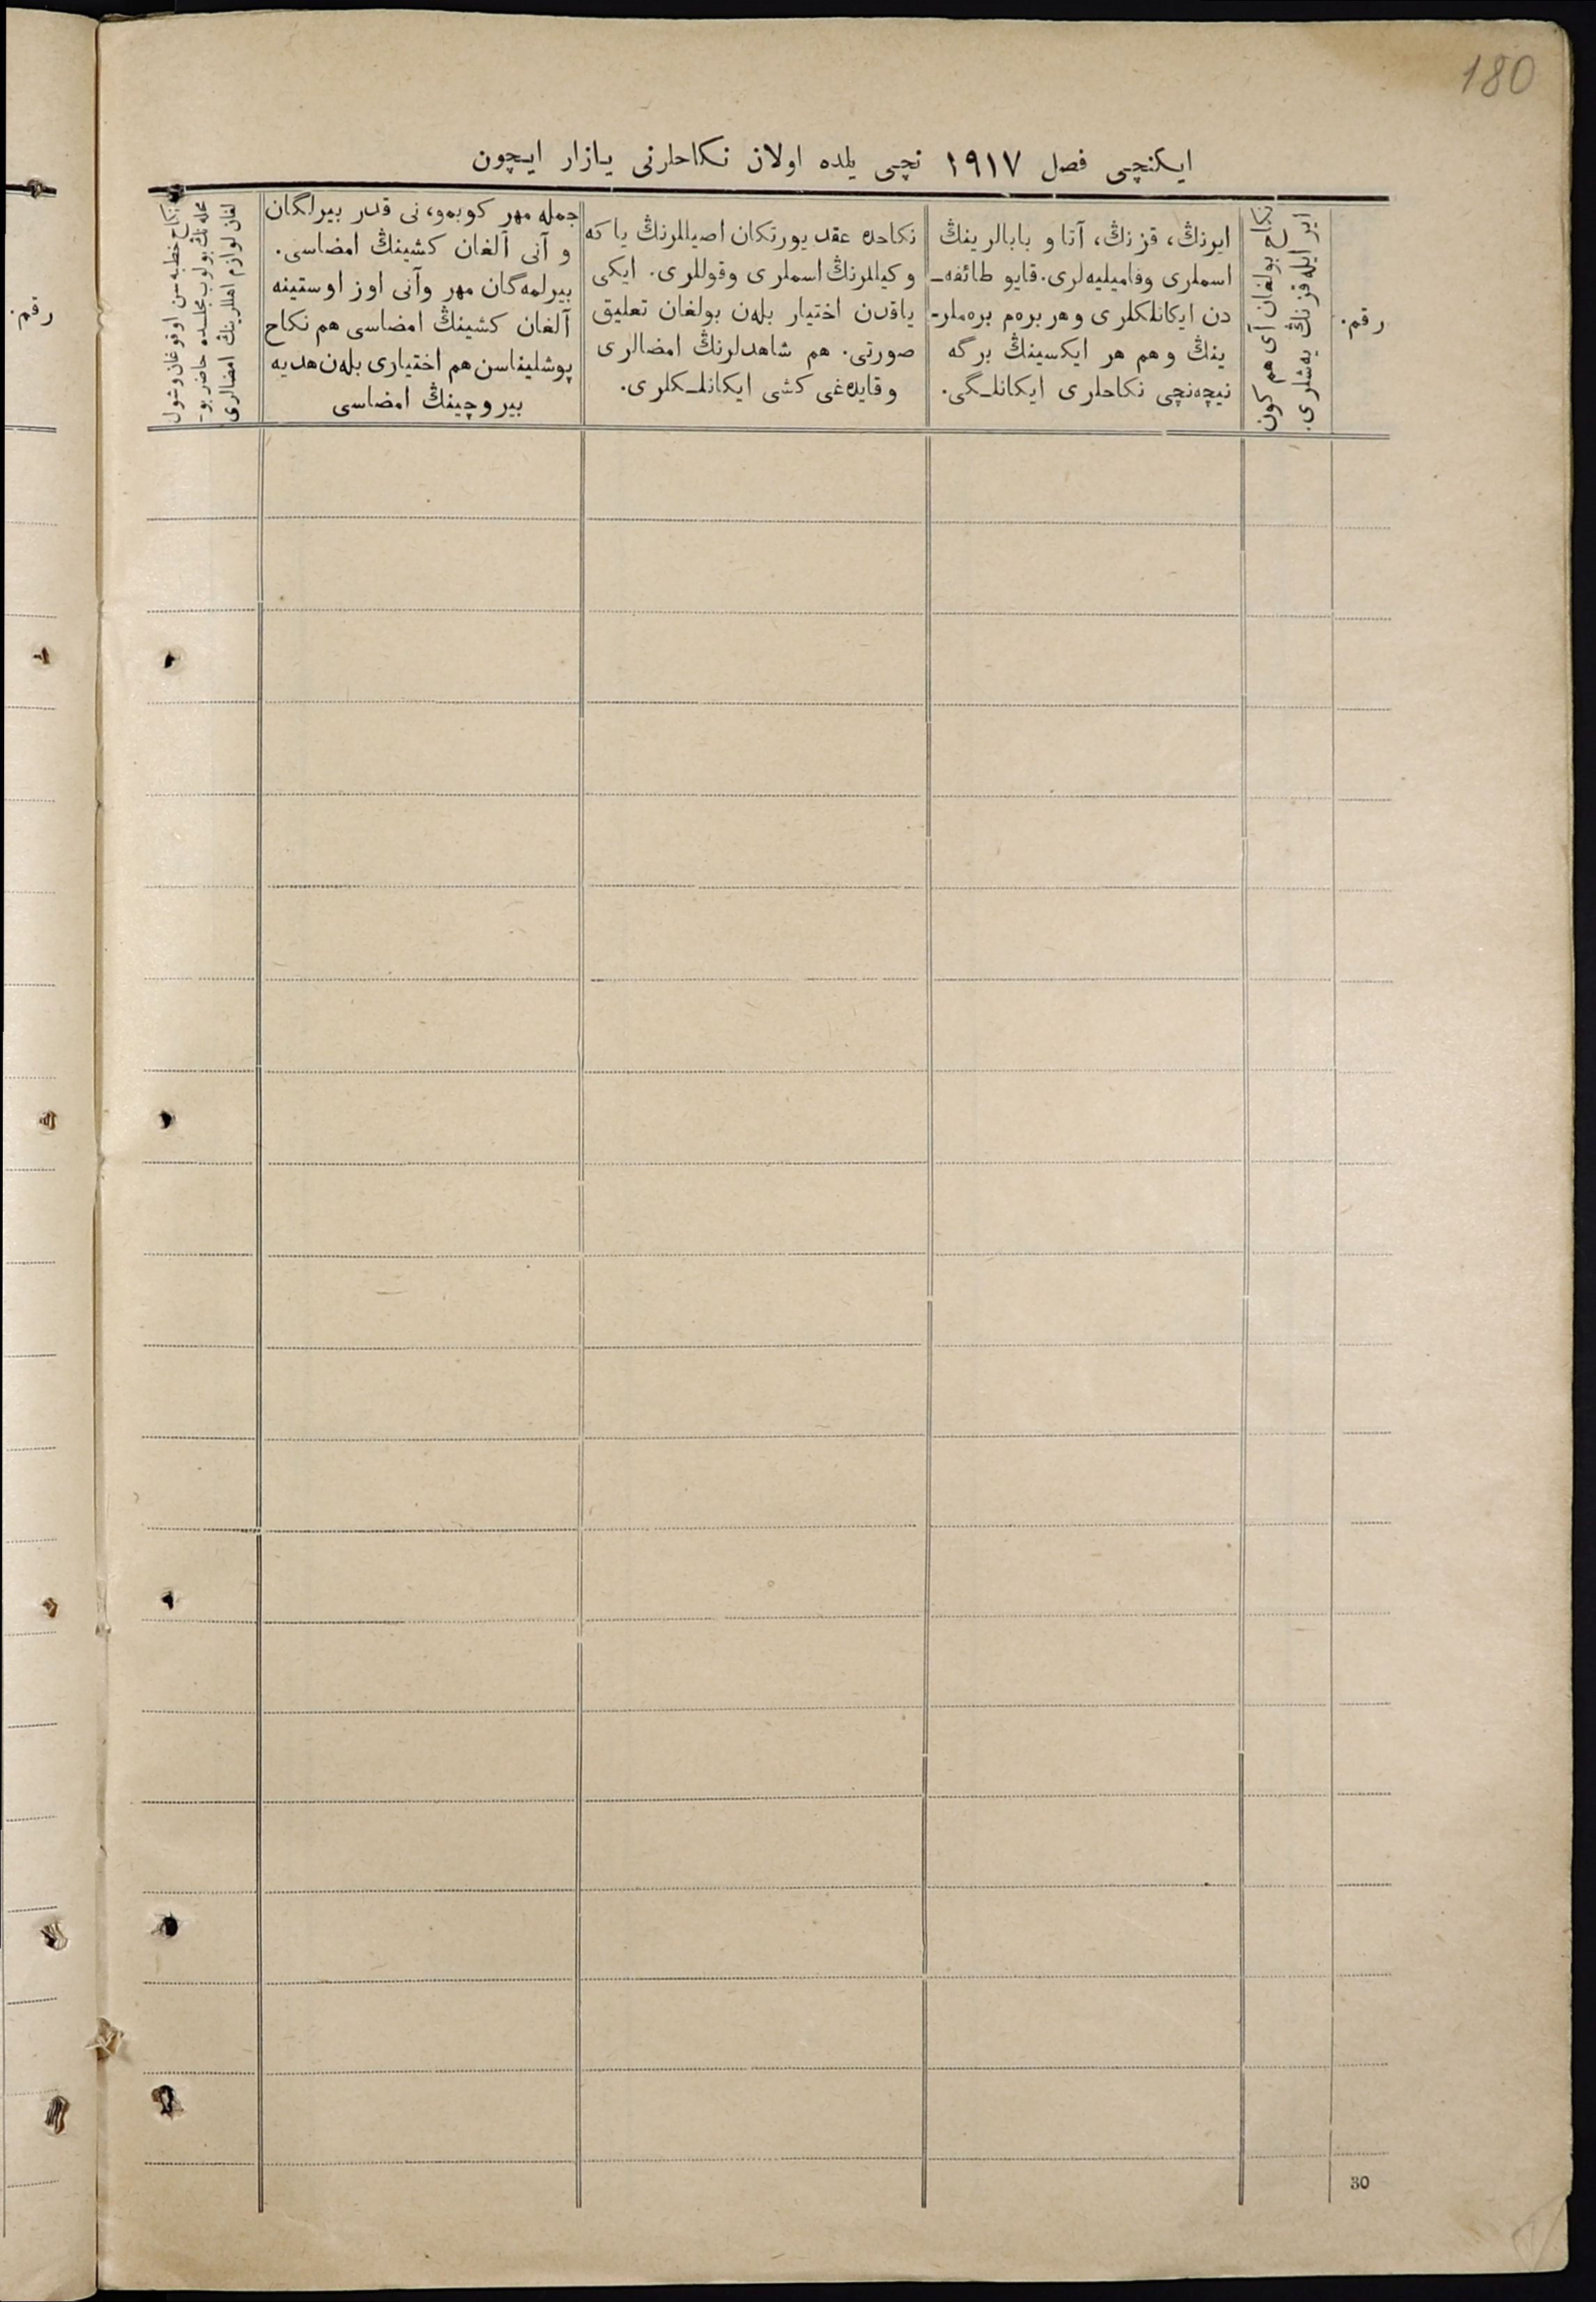 180
ایکنچی فصل ١٩١٧ نچی یلده اولان نکاحلرنی یازار ایچون
رقم.
ایر ایله قزنڭ یه‌شلری.
نکاح بولغان آی هم کون
ایرنڭ، قزنڭ، آتا و بابالرینڭ
اسملری وفامیلیه‌لری. قایو طائفه‌ـ
دن ایکانلکلری وهر بره‌م بره‌ملرـ
ینڭ وهم هر ایکسینڭ برگه
نیچه‌نچی نکاحلری ایکانلـگی.
نکاحده عقد یورتکان اصیللرنڭ یا که
وکیللرنڭ اسملری وقوللری. ایکی
یاقدن اختیار بله‌ن بولغان تعلیق
صورتی. هم شاهدلرنڭ امضالری
وقایده‌غی کشی ایکانلـکلری.
جمله مهر کوبمو، نی قدر بیرلگان
و آنی آلغان کشینڭ امضاسی.
بیرلمه‌گان مهر وآنی اوز اوستینه
آلغان کشینڭ امضاسی هم نکاح
پوشلیناسن هم اختیاری بله‌ن هدیه
بیروچینڭ امضاسی
نکاح خطبه‌سن اوقوغان وشول
محله‌نڭ بولوب مجلسده حاضر بوـ
لغان لوازم اهللرینڭ امضالری
رقم.
30